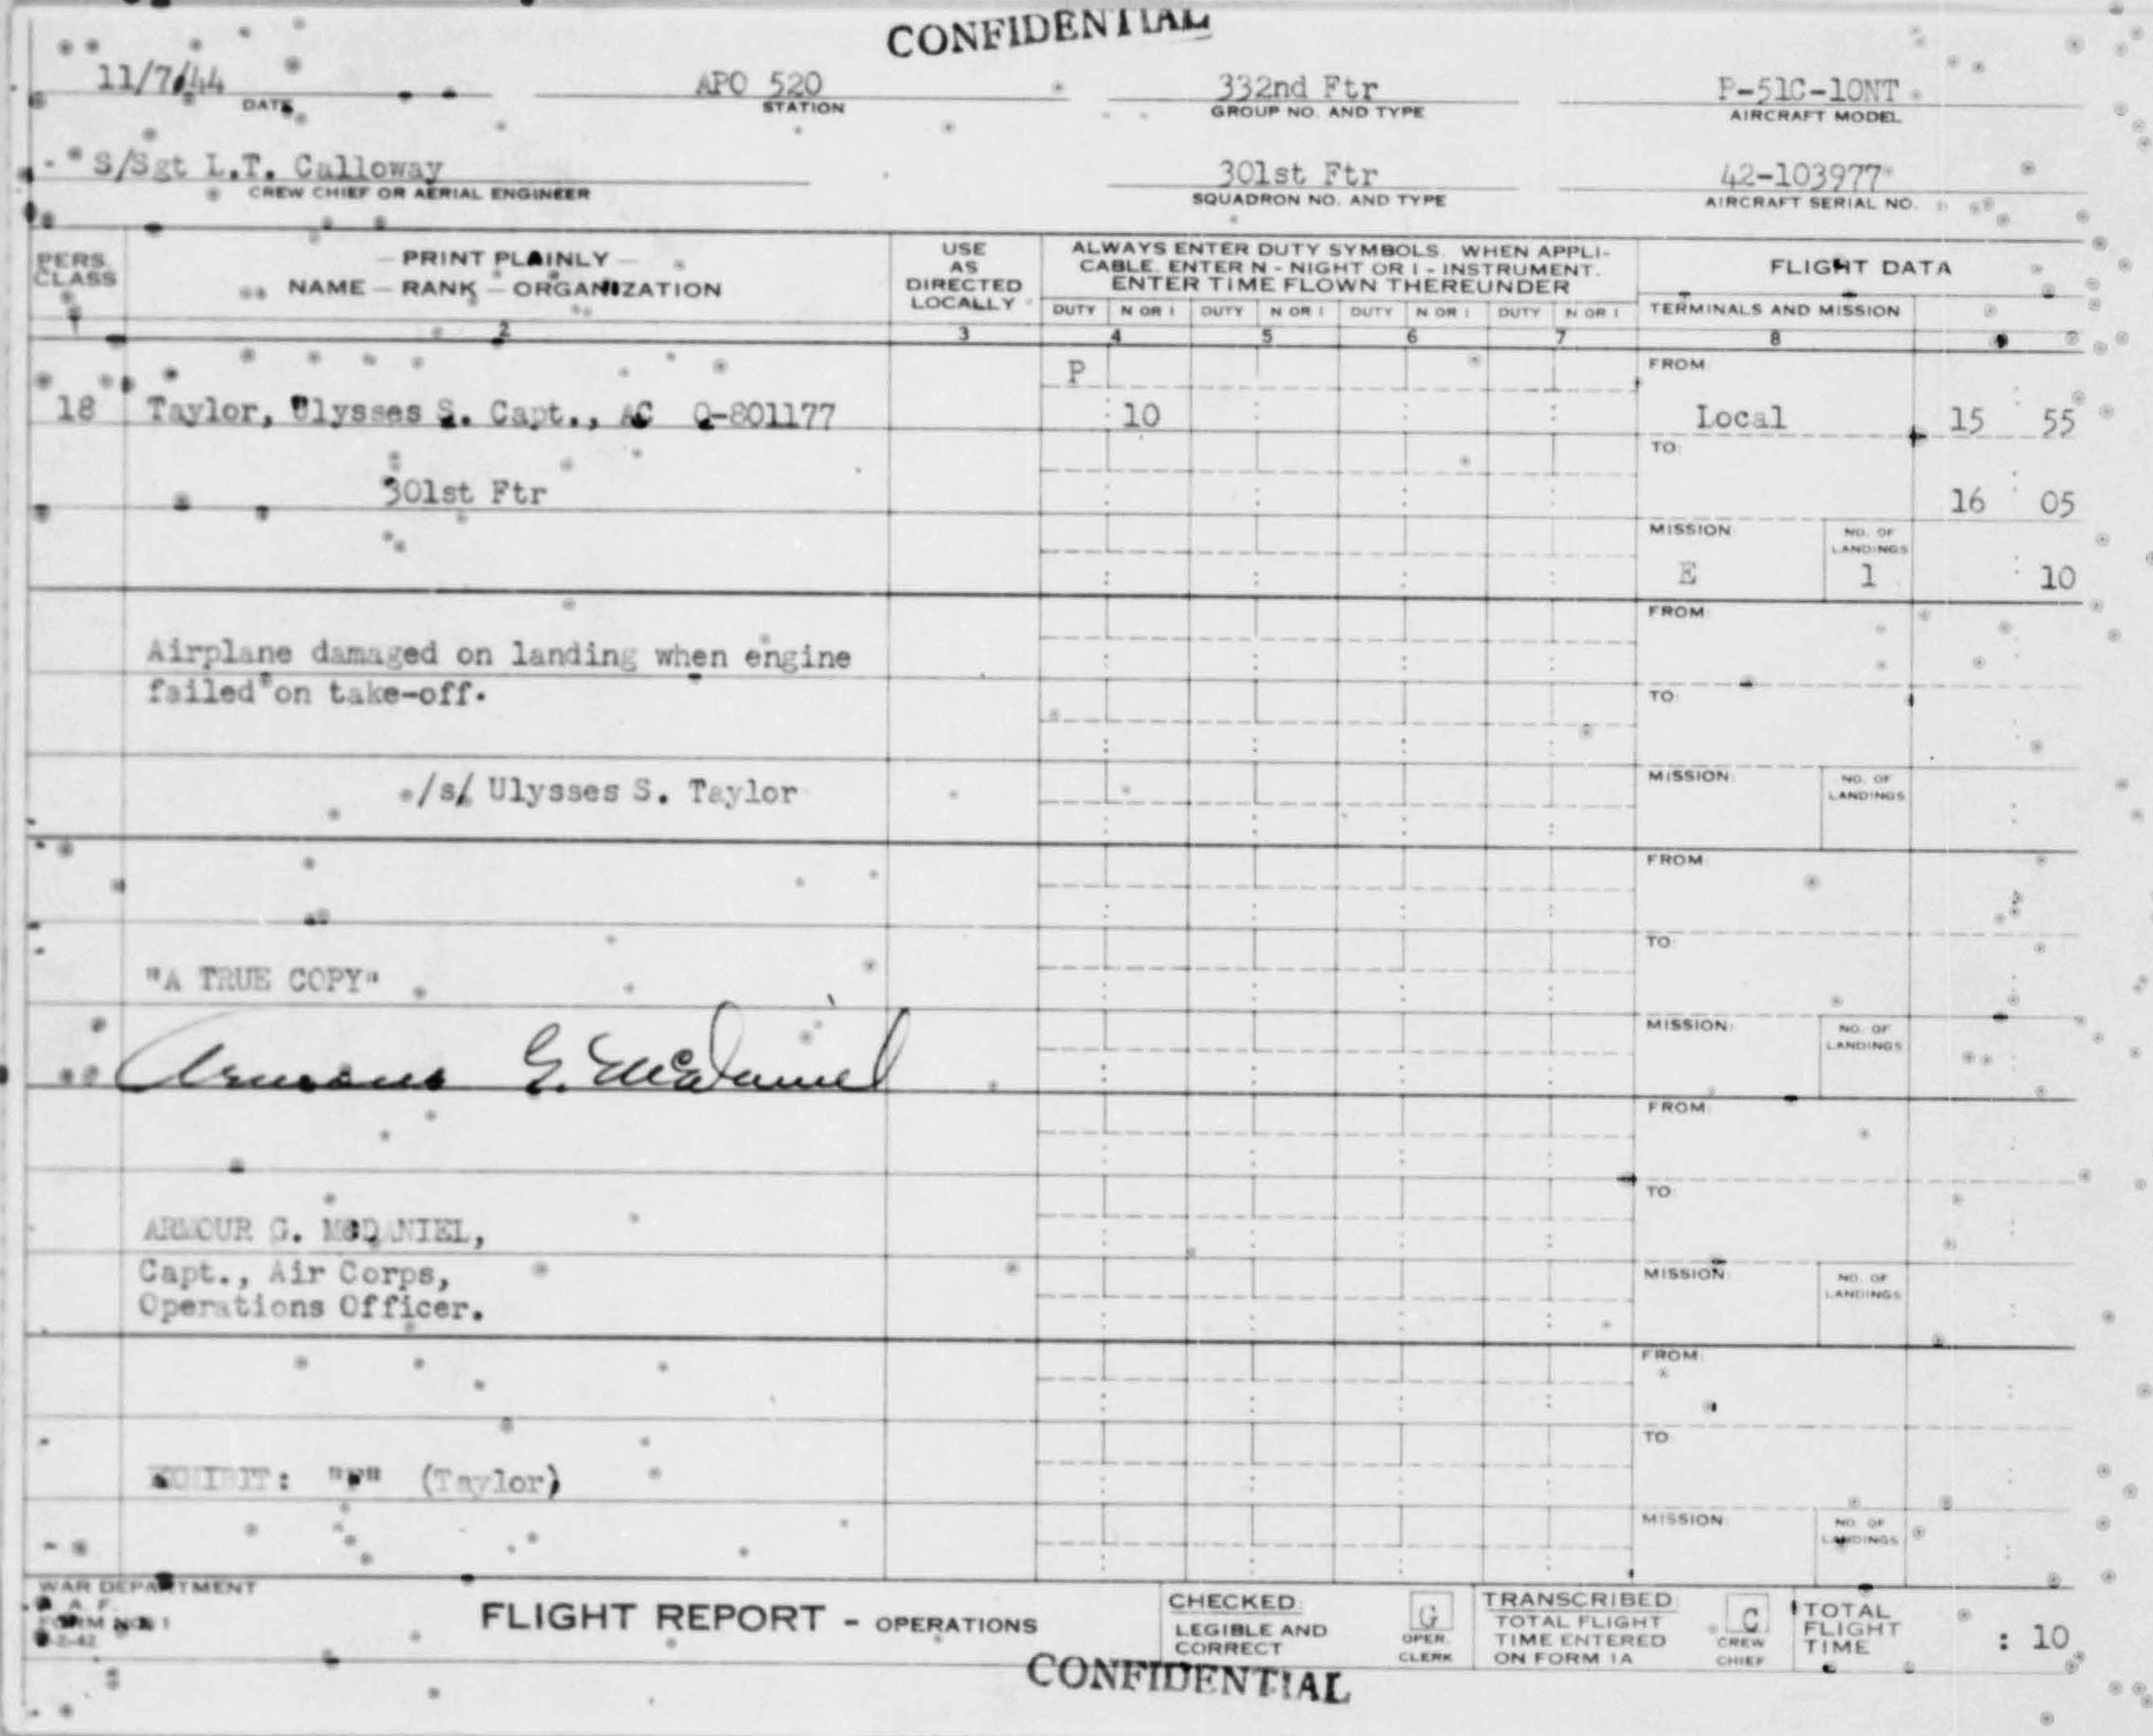 CONFIDENTIAL
11/7/44 APO 520 332nd Ftr P-51C-10NT
DATE STATION GROUP NO. AND TYPE AIRCRAFT MODEL
S/Sgt L.T. Calloway 301st Ftr 42-103977
CREW CHIEF OR AERIAL ENGINEER SQUADRON NO. AND TYPE AIRCRAFT SERIAL NO.
PERS. CLASS
PRINT PLAINLY
NAME — RANK — ORGANIZATION
USE AS DIRECTED LOCALLY
ALWAYS ENTER DUTY SYMBOLS. WHEN APPLI-
CABLE, ENTER N - NIGHT OR I - INSTRUMENT.
ENTER TIME FLOWN THEREUNDER
FLIGHT DATA
DUTY N OR I DUTY N OR I DUTY N OR I DUTY N OR I TERMINALS AND MISSION
2 3 4 5 6 7 8
P FROM:
18 Taylor, Ulysses S. Capt., AC O-801177 : 10 Local 15 : 55
TO:
301st Ftr 16 : 05
MISSION: NO. OF LANDINGS
E 1 : 10
FROM:
Airplane damaged on landing when engine
failed on take-off.
TO:
/s/ Ulysses S. Taylor
MISSION: NO. OF LANDINGS
FROM:
TO:
"A TRUE COPY"
MISSION: NO. OF LANDINGS
Armour G. McDaniel
FROM:
TO:
ARMOUR G. McDANIEL,
Capt., Air Corps,
Operations Officer.
MISSION: NO. OF LANDINGS
FROM:
TO:
EXHIBIT: (Taylor)
MISSION: NO. OF LANDINGS
WAR DEPARTMENT
A. A. F.
FORM NO. 1
FLIGHT REPORT - OPERATIONS
CHECKED:
LEGIBLE AND
CORRECT
G
OPER.
CLERK
TRANSCRIBED
TOTAL FLIGHT
TIME ENTERED
ON FORM 1A
C
CREW
CHIEF
TOTAL
FLIGHT
TIME
: 10
CONFIDENTIAL